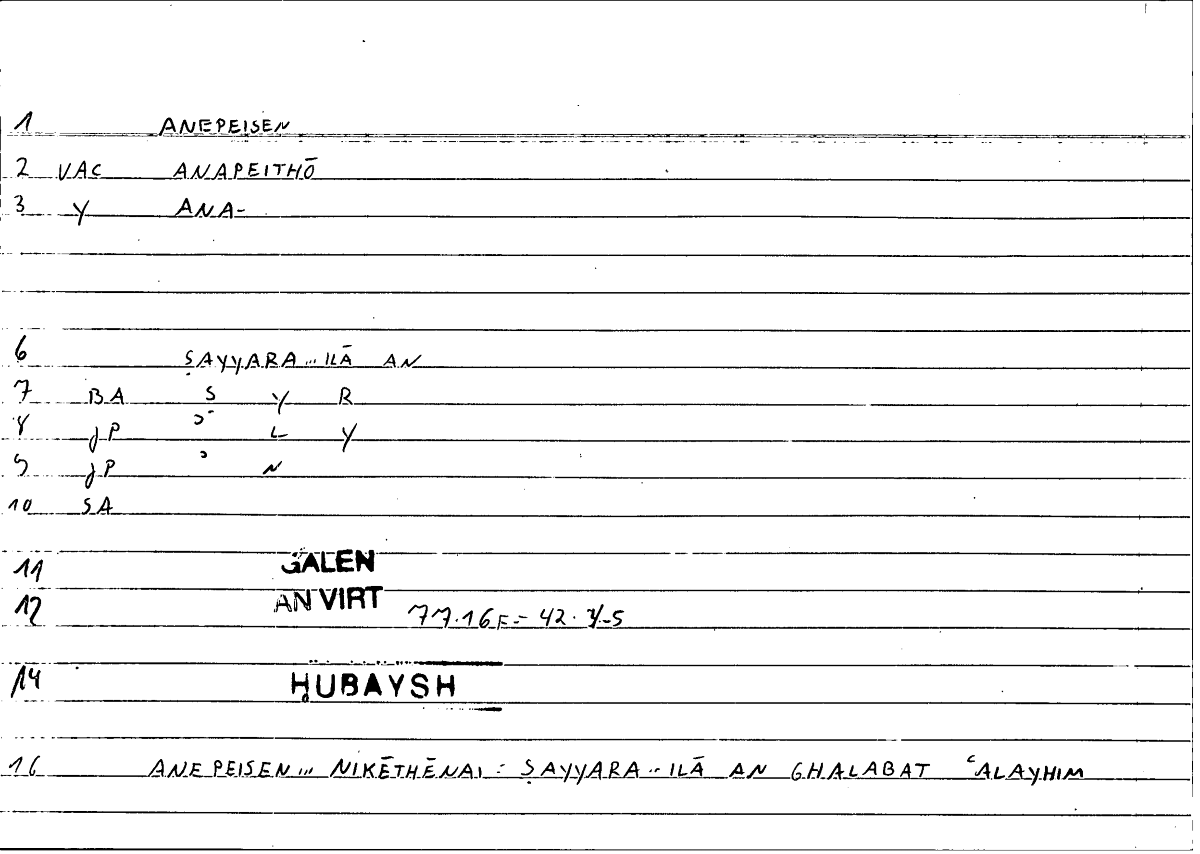 1 ANEPEISEN
2 VAC ANAPEITHŌ
3 Y ANA-
6 ṢAYYARA... ILĀ AN
7 BA Ṣ Y R
8 JP ʾ L Y
9 JP ʾ N
10 SA
11 GALEN
12 AN VIRT 77.16F = 42.4-5
14 ḤUBAYSH
16 ANEPEISEN... NIKĒTHĒNAI = ṢAYYARA... ILĀ AN GHALABAT ʿALAYHIM